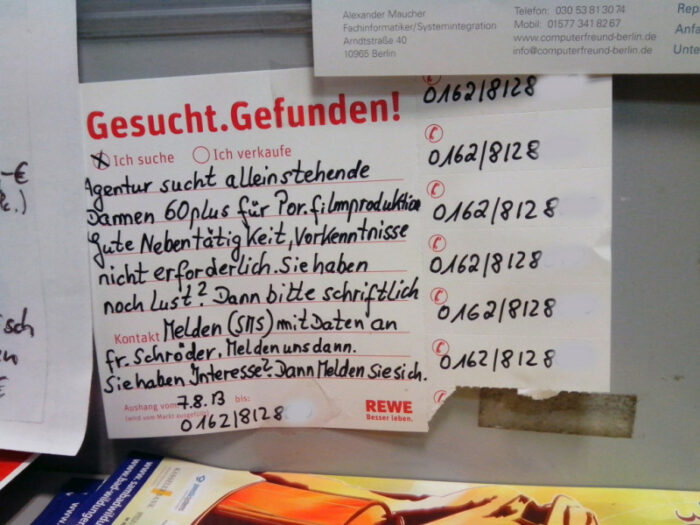 Alexander Maucher
Fachinformatiker/Systemintegration
Arndtstraße 40
10965 Berlin
Telefon: 030 53 81 30 74
Mobil: 01577 341 82 67
www.computerfreund-berlin.de
info@computerfreund-berlin.de
Rep
Anfa
Unte
Gesucht.Gefunden!
Ich suche
Ich verkaufe
Agentur sucht alleinstehende
Dammen 60plus für Por.filmproduktion
Gute Nebentätigkeit, Vorkenntnisse
nicht erforderlich. Sie haben
noch Lust? Dann bitte schriftlich
Kontakt Melden (SMS) mit Daten an
fr. Schröder, Melden uns dann.
Sie haben Interesse? Dann Melden Sie sich.
Aushang vom 7.8.13 bis:
(wird vom Markt ausgefüllt)
0162/8128
REWE
Besser leben.
0162/8128
0162/8128
0162/8128
0162/8128
0162/8128
0162/8128
-€
.)
sch
en
€